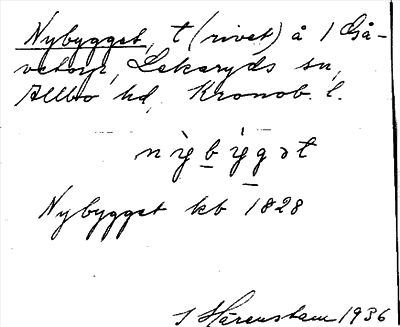 Nybygget, t (rivet) å 1 Gå-
vetorp, Lekaryds sn,
Allbo hd, Kronob. l.
nỳbý̀gət
Nybygget kb 1828
I Härenstam 1936